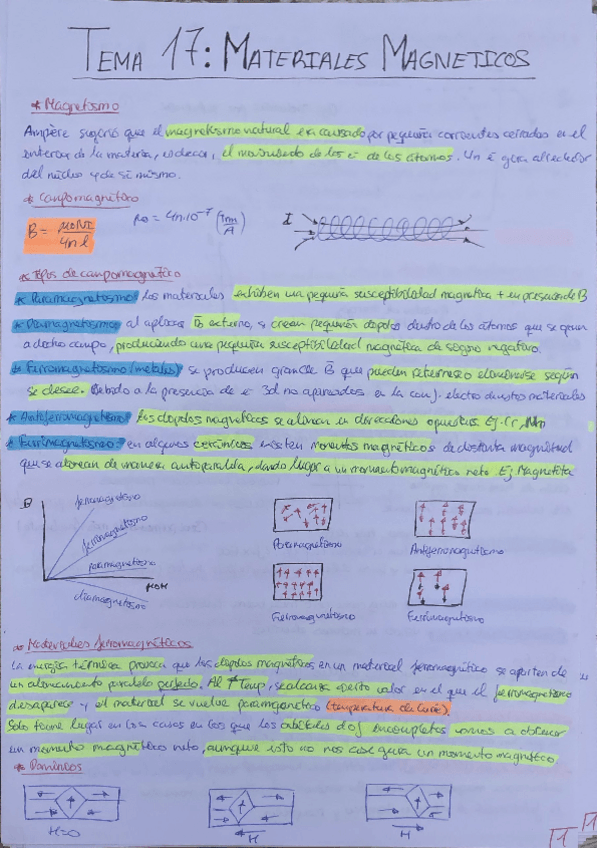 TEMA 17: MATERIALES MAGNETICOS
* Magnetismo
Ampère sugirió que el magnetismo natural era causado por pequeñas corrientes cerradas en el
interior de la materia, es decir, el movimiento de los e⁻ de los átomos. Un e⁻ gira alrededor
del núcleo y de sí mismo.
* Campo magnético
B = μ0NI / 4π l
μ0 = 4π·10⁻⁷ (Tm/A)
I
* Tipos de campo magnético
* Paramagnetismo: los materiales exhiben una pequeña susceptibilidad magnetica + en presencia de B
* Diamagnetismo: al aplicar B externo, se crean pequeños dipolos dentro de los átomos que se oponen
a dicho campo, produciendo una pequeña susceptibilidad magnética de signo negativo.
* Ferromagnetismo (metales) se producen grandes B que pueden retenerse o eliminarse según
se desee. Debido a la presencia de e⁻ 3d no apareados en la conf. electro de estos materiales
* Antiferromagnetismo: los dipolos magneticos se alinean en direcciones opuestas. Ej. Cr, Mn
* Ferrimagnetismo: en algunos cerámicos existen momentos magnéticos de distinta magnitud
que se alinean de manera antiparalela, dando lugar a un momento magnético neto. Ej Magnetita
B
ferromagnetismo
ferrimagnetismo
paramagnetismo
diamagnetismo
μ0H
Paramagnetismo
Antiferromagnetismo
Ferromagnetismo
Ferrimagnetismo
* Materiales ferromagnéticos
La energía térmica provoca que los dipolos magnéticos en un material ferromagnético se aparten de
un alineamiento paralelo perfecto. Al ↑ Temp, se alcanza cierto valor en el que el ferromagnetismo
desaparece y el material se vuelve paramagnético (temperatura de Curie).
Solo tiene lugar en los casos en los que los orbitales d o f incompletos vamos a obtener
un momento magnético neto, aunque esto no nos asegura un momento magnético
* Dominios
H=0
H
H
1